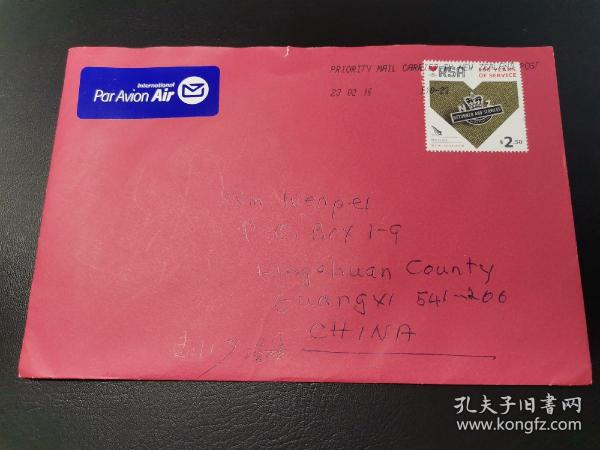 International
Par Avion Air
PRIORITY MAIL
POST
23 02 16
RSA
100 YEARS
OF SERVICE
NZ
RETURNED AND SERVICES
$2.50
Wenpei
P.O. Box 1-9
Lingchuan County
Guangxi 541-200
CHINA
孔夫子旧书网
www.kongfz.com